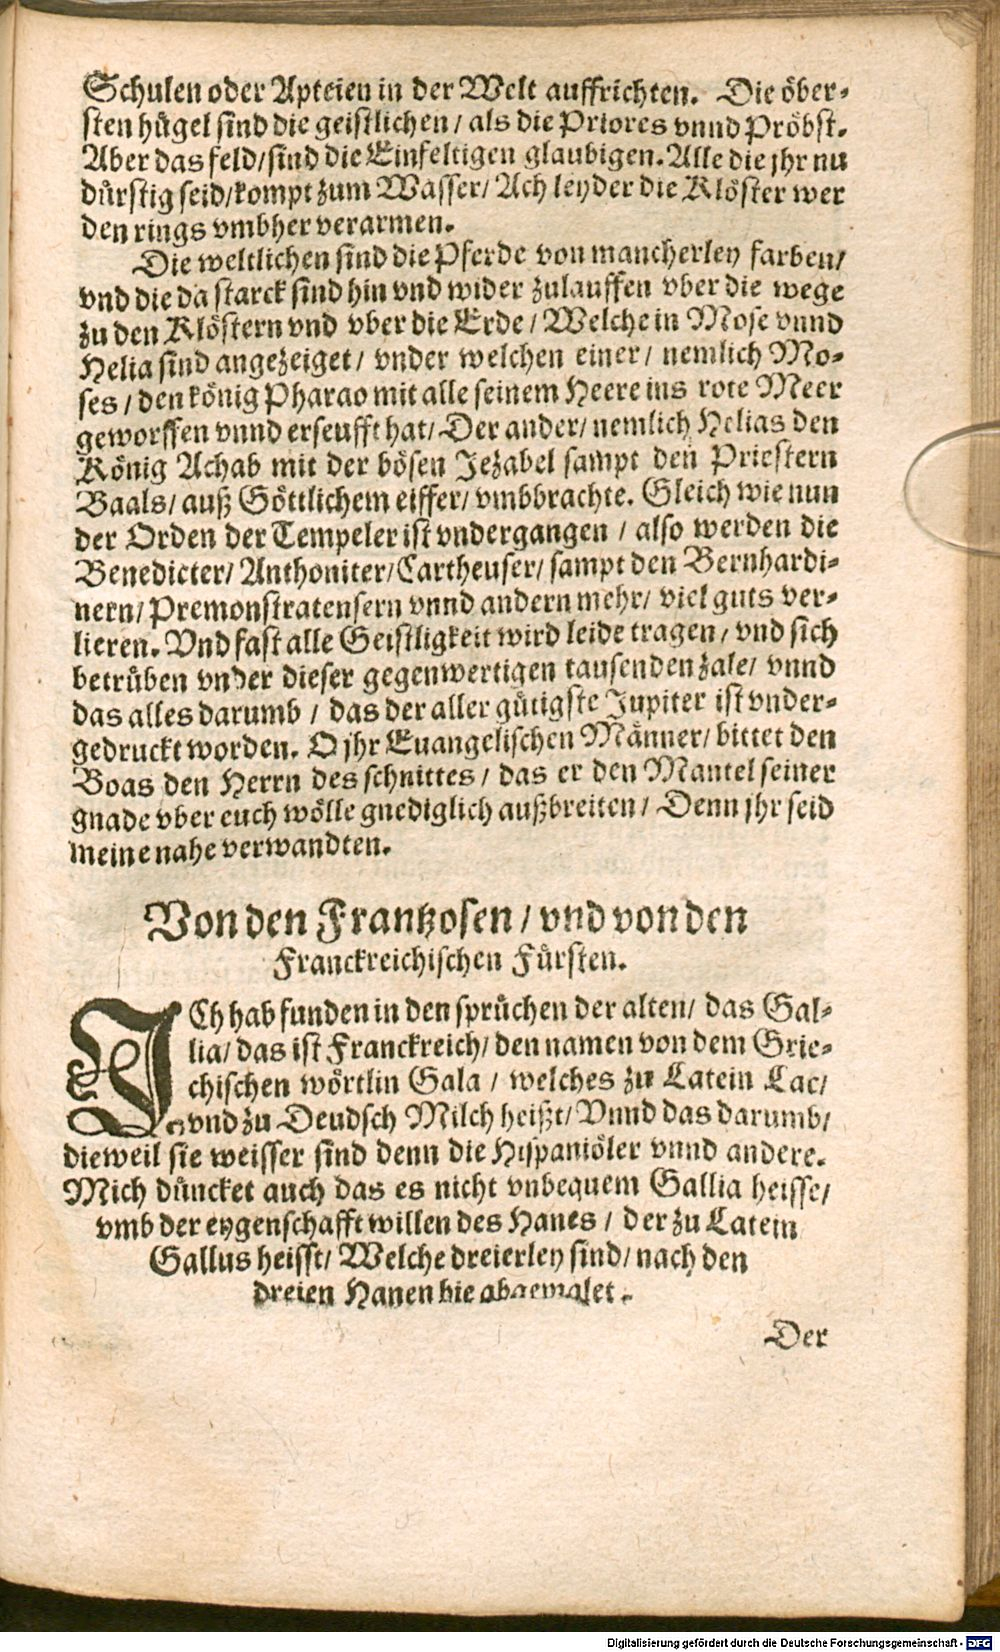 Schulen oder Apteien in der Welt auffrichten. Die öber-
sten hügel sind die geistlichen / als die Priores vnnd Pröbst.
Aber das feld / sind die Einfeltigen glaubigen. Alle die jhr nu
dürstig seid / kompt zum Wasser / Ach leyder die Klöster wer
den rings vmbher verarmen.
Die weltlichen sind die Pferde von mancherley farben /
vnd die da starck sind hin vnd wider zulauffen vber die wege
zu den Klöstern vnd vber die Erde / Welche in Mose vnnd
Helia sind angezeiget / vnder welchen einer / nemlich Mo-
ses / den könig Pharao mit alle seinem Heere ins rote Meer
geworffen vnnd erseufft hat / Der ander / nemlich Helias den
König Achab mit der bösen Jezabel sampt den Priestern
Baals / auß Göttlichem eiffer / vmbbrachte. Gleich wie nun
der Orden der Tempeler ist vndergangen / also werden die
Benedicter / Anthoniter / Cartheuser / sampt den Bernhardi-
nern / Premonstratensern vnnd andern mehr / viel guts ver-
lieren. Vnd fast alle Geistligkeit wird leide tragen / vnd sich
betrüben vnder dieser gegenwertigen tausenden zale / vnnd
das alles darumb / das der aller gütigste Jupiter ist vnder-
gedruckt worden. O jhr Euangelischen Männer / bittet den
Boas den Herrn des schnittes / das er den Mantel seiner
gnade vber euch wölle gnediglich außbreiten / Denn jhr seid
meine nahe verwandten.
Von den Frantzosen / vnd von den
Franckreichischen Fürsten.
ICh hab funden in den sprüchen der alten / das Gal-
lia / das ist Franckreich / den namen von dem Grie-
chischen wörtlin Gala / welches zu Latein Lac /
vnd zu Deudsch Milch heißt / Vnnd das darumb /
dieweil sie weisser sind denn die Hispaniöler vnnd andere.
Mich düncket auch das es nicht vnbequem Gallia heisse /
vmb der eygenschafft willen des Hanes / der zu Latein
Gallus heisst / Welche dreierley sind / nach den
dreien Hanen hie abgemalet.
Der
Digitalisierung gefördert durch die Deutsche Forschungsgemeinschaft - DFG